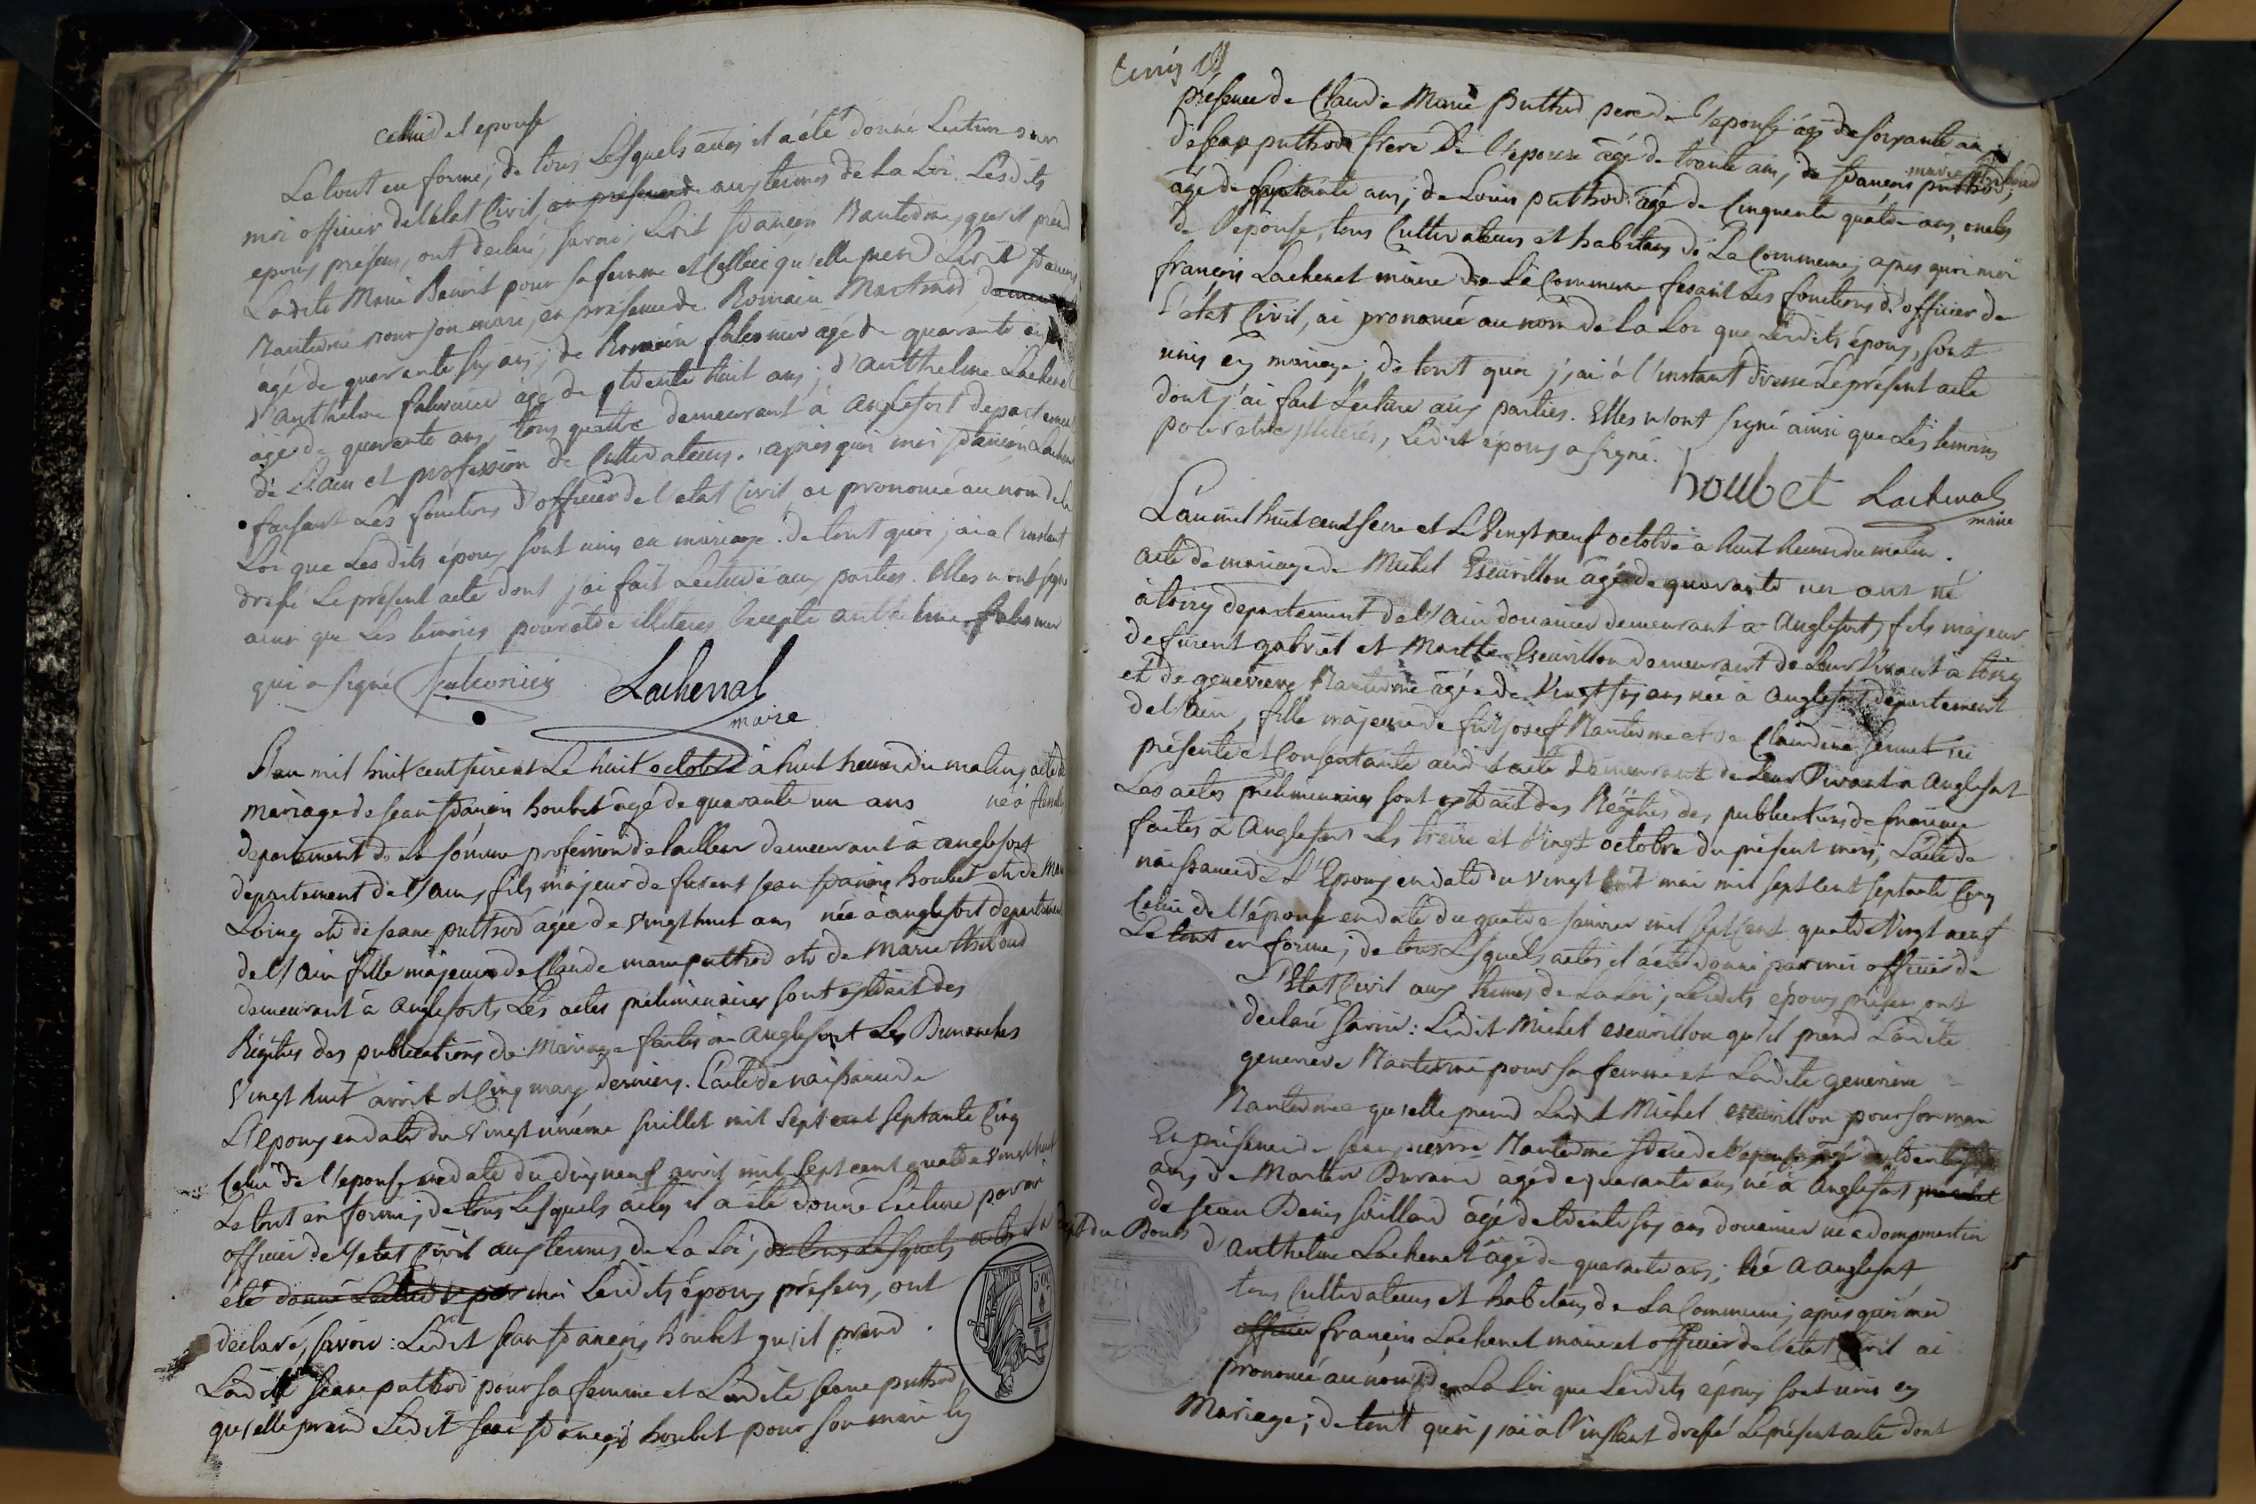 celluid el epouse
Le tout en forme; de tous Lesquels actes il a été donné Lecture par
moi officier de l'état Civil, aux termes de La Loi. Lesdits
epoux présens, ont declaré, savoir; Ledit françois Nantermé, qu'il prend
Ladite Marie Benoit pour sa femme et Celleci qu'elle prend Ledit françois
Nantermé pour son mari, en présence de Romain Martinod
âgé de quarante six ans; de Romain falconier âgé de quarante
d'anthelme falconier âgé de trente huit ans; d'anthelme Lachenal
âgé de quarante ans, tous quattre demeurant à anglefort departement
de L'ain et profession de Cultivateurs. après quoi moi françois Lachenal
faisant Les fonctions d'officier de l'etat Civil ai prononcé au nom de la
Loi que Les dits époux sont unis en mariage. De tout quoi j'ai a l'instant
dressé Le présent acte dont j'ai fait Lecture aux parties. Elles n'ont signé
ainsi que Les temoins pour etre illiteres Excepté anthelme falconier
qui a signé falconier Lachenal
maire
L'an mil huit cent seize et Le huit octobre à huit heures du matin, acte de
mariage de jean françois houbet âgé de quarante un ans né à
departement de La somme profession de tailleur demeurant à anglefort
departement de l'ain, fils majeur de furent jean françois houbet et de
Loing et de jeane puthod âgée de vingt huit ans née à anglefort departement
de l'ain fille majeure de Claude marie puthod et de Marie
demeurant à anglefort, Les actes préliminaires sont extrait des
Régitres des publications de Mariage faites a anglefort Les Dimanches
Vingt huit avril et Cinq may derniers. L'acte de naissance de
L'epoux en date du vingt unieme juillet mil sept cent septante Cinq
Celui de l'epouse en date du dix neuf avril mil sept cent quatre vingt huit
Le tout en forme, de tous Lesquels actes il a été donné Lecture par moi
officier de l'etat Civil aux termes de La Loi, de tous Lesquels actes il a
été donné Lecture par moi Lesdits époux présens, ont
déclaré, savoir: Ledit jean françois houbet qu'il prend
Ladite jeane puthod pour sa femme et Ladite jeane puthod
qu'elle prend Ledit jean françois houbet pour son mari En
présence de Claude Marie puthod pere de l'epouse, âgé de soixante ans;
de jean puthod frere de l'épouse âgé de trente ans, de françois puthod,
âgé de septante ans; de Louis puthod âgé de Cinquante quatre ans, oncles
de l'épouse, tous Cultivateurs et habitans de La Commune; après quoi moi
françois Lachenal maire de La Commune fesant Les fonctions d'officier de
L'état Civil, ai prononcé au nom de La Loi que Lesdits époux, sont
unis en mariage; de tout quoi j'ai à l'instant dressé Le présent acte
dont j'ai fait Lecture aux parties. Elles n'ont signé ainsi que Les temoins
pour etre illiterés, Ledit époux a signé.
houbet Lachenal
maire
L'an mil huit cent seize et Le Vingt neuf octobre à huit heures du matin.
acte de mariage de Michel Escurillon âgé de quarante un ans né
à toiry departement de l'ain douanier demeurant à anglefort, fils majeur
de furent gabriel et Marthe Escurillon demeurant de Leur Vivant à toiry
et de genevieve Nantermé âgée de Vingt six ans née à anglefort département
de l'ain, fille majeure de fut josef Nantermé et de Claudine ici
présente et Consentante audit acte Demeurant de Leur Vivant à anglefort
Les actes préliminaires sont extrait des Régitres des publications de mariage
faites à anglefort Les treize et Vingt octobre du présent mois, L'acte de
naissance de l'Epoux en date du vingt huit mai mil sept cent septante Cinq
Celui de l'épouse en date du quatre janvier mil sept cent quatre vingt neuf
Le tout en forme; de tous Lesquels actes il a été donné par moi officier de
l'Etat Civil aux termes de La Loi; Lesdits époux présens ont
déclaré savoir: Ledit Michel escurillon qu'il prend Ladite
genevieve Nantermé pour sa femme et Ladite genevieve
Nantermé qu'elle prend Ledit Michel escurillon pour son mari
En présence de jean pierre Nantermé frere de l'épouse
ans, de Martin Durand âgé de quarante ans né à anglefort
de jean Denis juillard âgé de trente six ans douanier né a dompmartin
dept du Doubs d'anthelme Lachenal âgé de quarante ans; né a anglefort
tous Cultivateurs et habitans de La Commune; après quoi moi
officier françois Lachenal maire et officier de l'état Civil ai
prononcé au nom de La Loi que Lesdits époux sont unis en
Mariage; de tout quoi j'ai à l'instant dressé Le présent acte dont